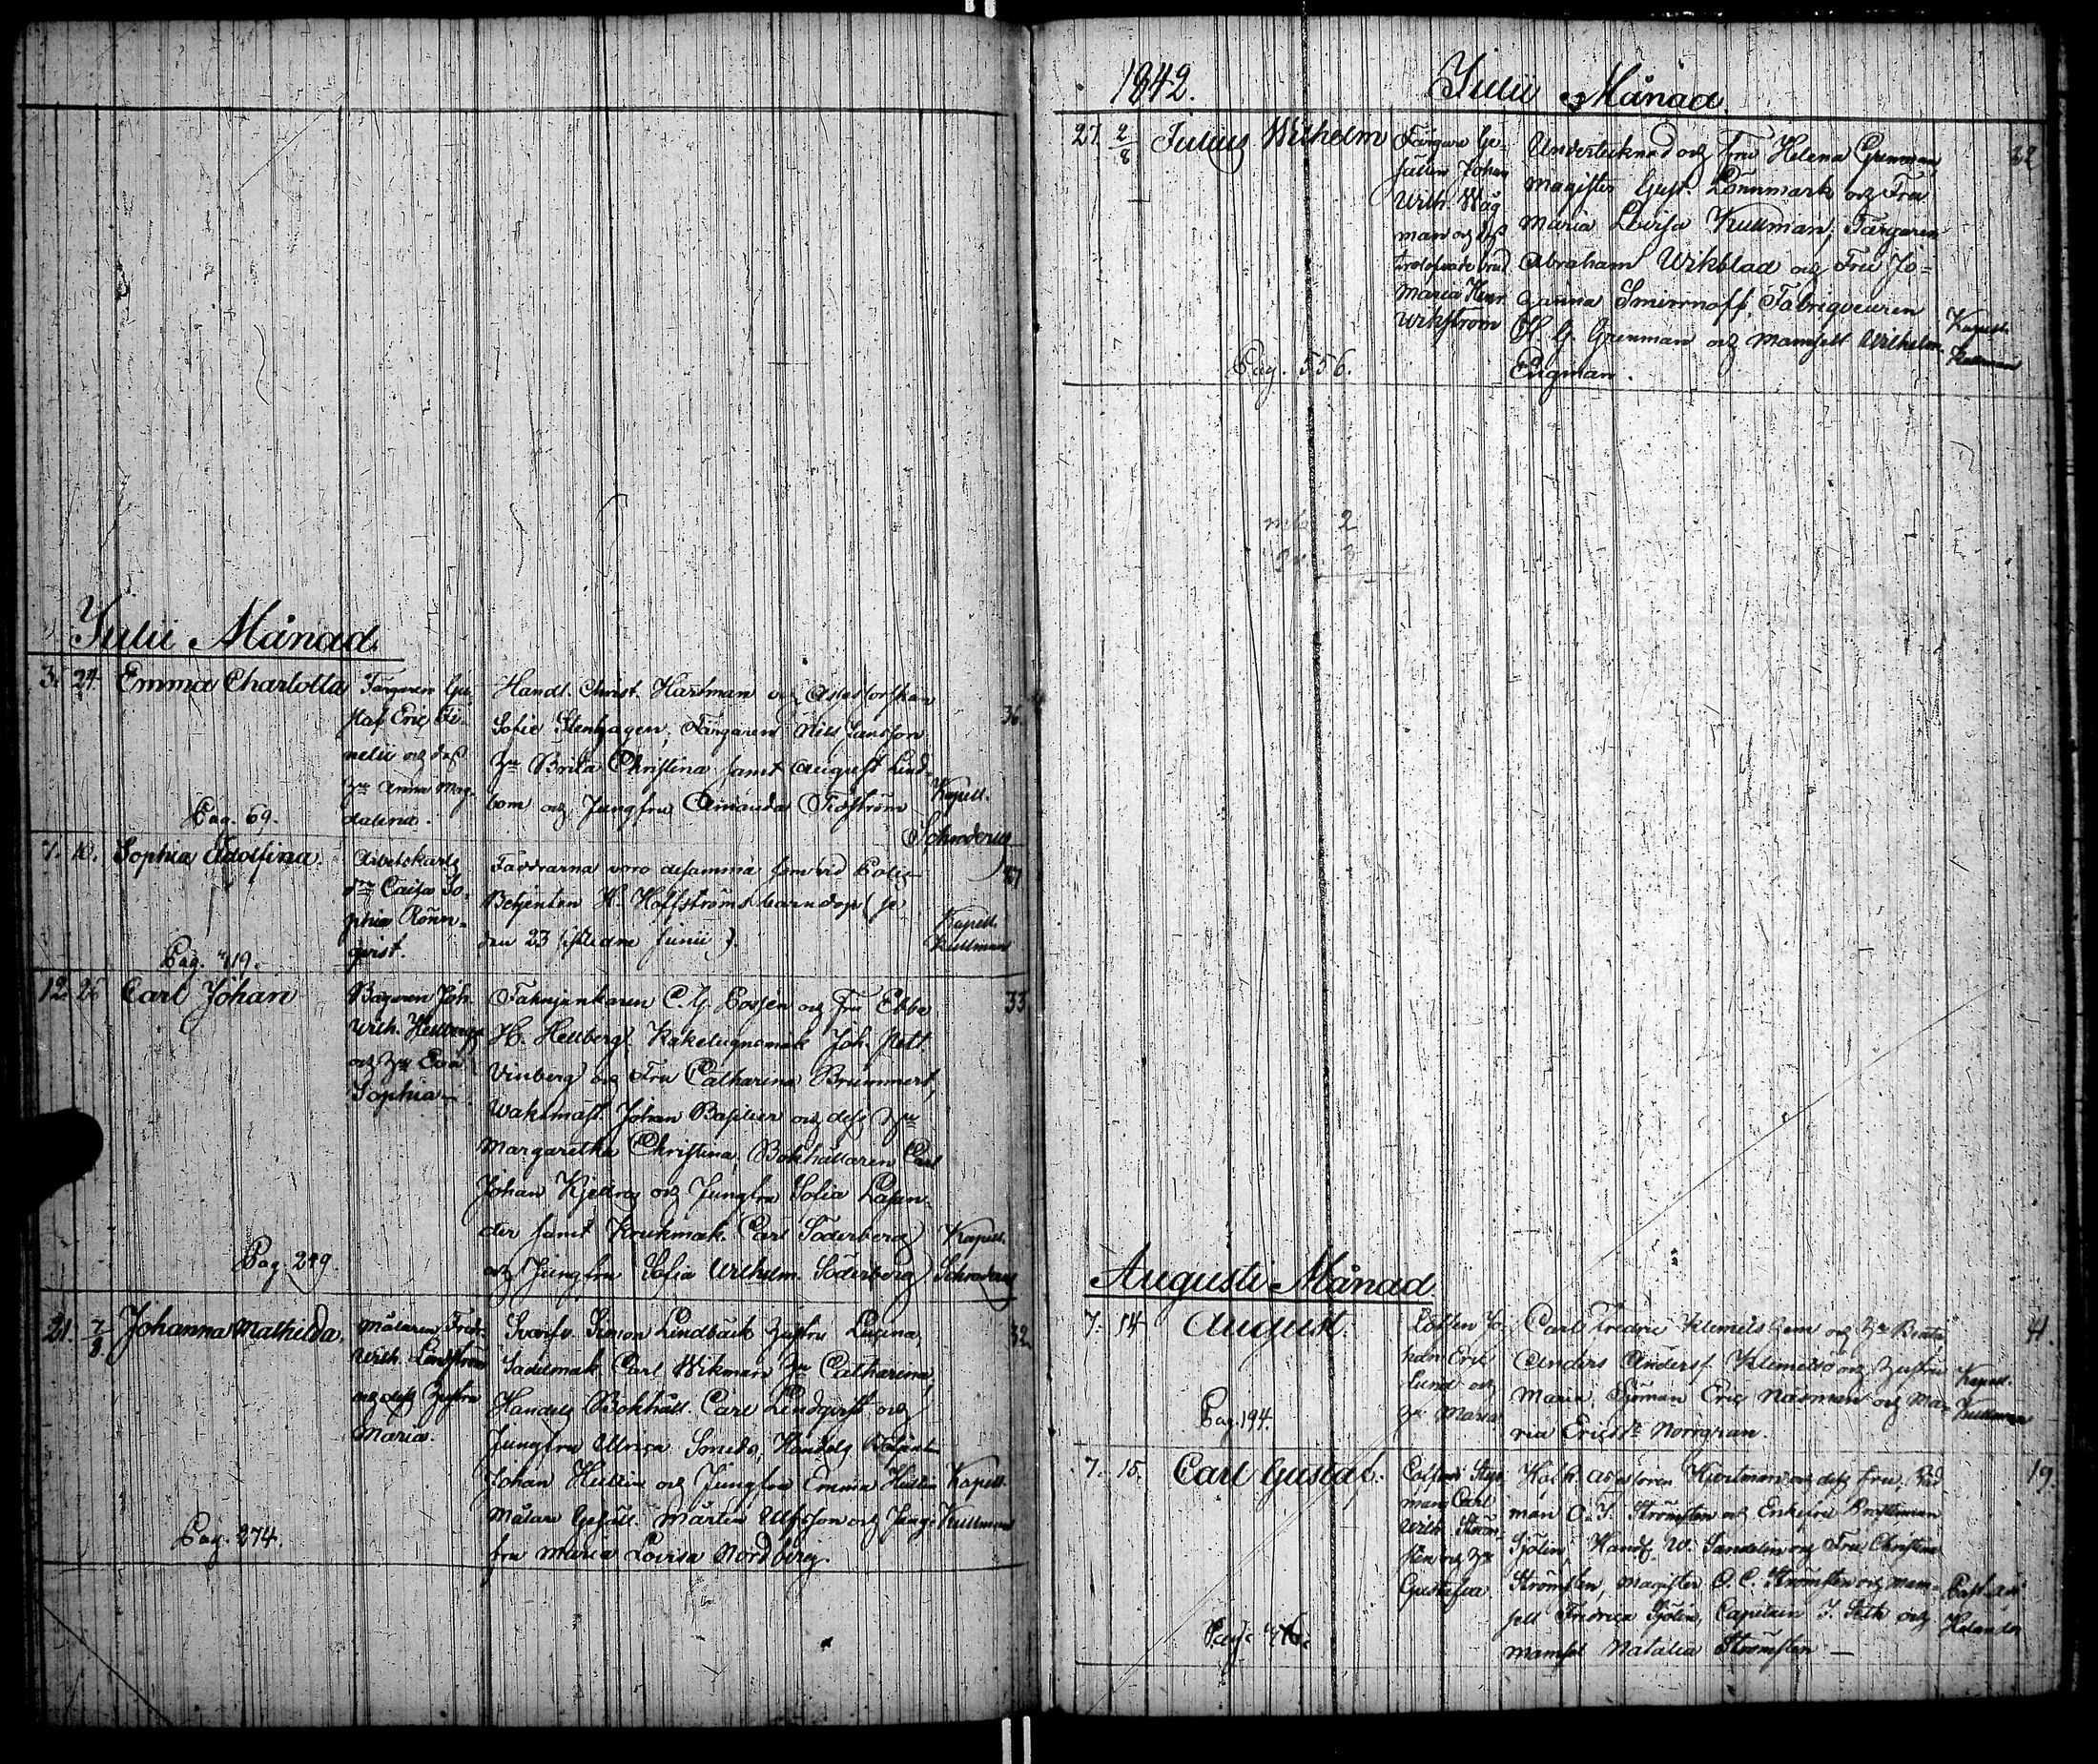 Julii Månad.
3. 24. Emma Charlotta
Färgaren Gu-
staf Eric Fe-
nelii och dess
Hu Anna Mag-
dalena.
Handl. Christ. Hartman och Assessorskan
Sofie Stenhagen, Färgaren Nils Jansson
Hu Brita Christina samt August Lind-
bom och Jungfru Amanda Tidström
36.
Kapell.
Schroderus
Pag. 69.
7. 10. Sophia Adolfina.
Arbetskarls
Caisa So-
phia Rönn-
qvist.
Faddrarna voro desamma som vid Polis-
Betjenten H. Holfströms barndop (se
den 23 sistledne Junii).
27
Kapell.
Kullman
Pag. 419.
12. 26 Carl Johan
Bagaren Joh.
Wilh. Hellberg
och Hu Eva
Sophia —
Fanjunkaren C. G. Bossén och Fru Ebba
H. Hellberg, Kakelugnsmak. Joh. Pett.
Vinberg och Fru Catharina Brummert,
Waktmäst. Johan Basilier och dess Hu
Margaretha Christina, Bokhållaren Carl
Johan och Jungfru Sofia
der samt Krukmak. Carl Söderberg
och Jungfru Sofia Wilhelm. Söderberg
33
Kapell.
Schroderus
Pag. 249.
21. 2/8 Johanna Mathilda.
Målaren Fredr.
Wilh. Lindström
och dess hustru
Maria.
Svarfv. Simon Lindbäck hustru Lucina,
Sadelmak. Carl Wikman Hu Catharina,
Handels Bokhåll. Carl Lindqvist och
Jungfru Ulrica Smeds, Handels Betjent
Johan Hullin och Jungfru Emma Hullin
Målare Gesäll. Mårten Ulfsson och Jung-
fru Maria Lovisa Nordberg.
32
Kapell.
Kullman
Pag. 274.
1842. Julii Månad
27. 2/8 Julius Wilhelm
Färgare Ge-
sällen Johan
Wilh. Wåg
man och dess
trolofvade brud
Maria Henr.
Wikström
Undertecknad och Fru Helena Grenman,
Magister Gust. Lönnmark och Fru
Maria Lovisa Kullman, Färgaren
Abraham Wikblad och Fru Jo-
hanna Smirnoff, Fabriqueuren
H. G. Grenman och Mamsell Wilhelm.
Engman.
32
Kapell.
Kullman
Pag. 556.
2
Augusti Månad.
7. 14 August.
Lotsen Jo-
han Eric
lund och
Hu Maria
Carl Fredric Klemets hem och Hu Beata,
Anders Anders. Klemetsö och hustru
Maria, Eric Näsman och Ma-
ria Ericsdr Norrgran.
41.
Kapell.
Kullman
Pag. 194.
7. 15. Carl Gustaf.
Coffardi Styr-
man Carl
Wilh. Ström-
sten och Hu
Gustafva
Koch. Assessoren Kurtman och dess fru, Råd-
man O. J. Strömsten och Enkefru
Sjölin, Handl. W. Sandelin och Fru Christina
Strömsten, Magister O. C. Strömsten och Mam-
sell Fredrica Sjölin, Capitain J. Seth och
Mamsel Natalia Strömsten —
19.
Helander